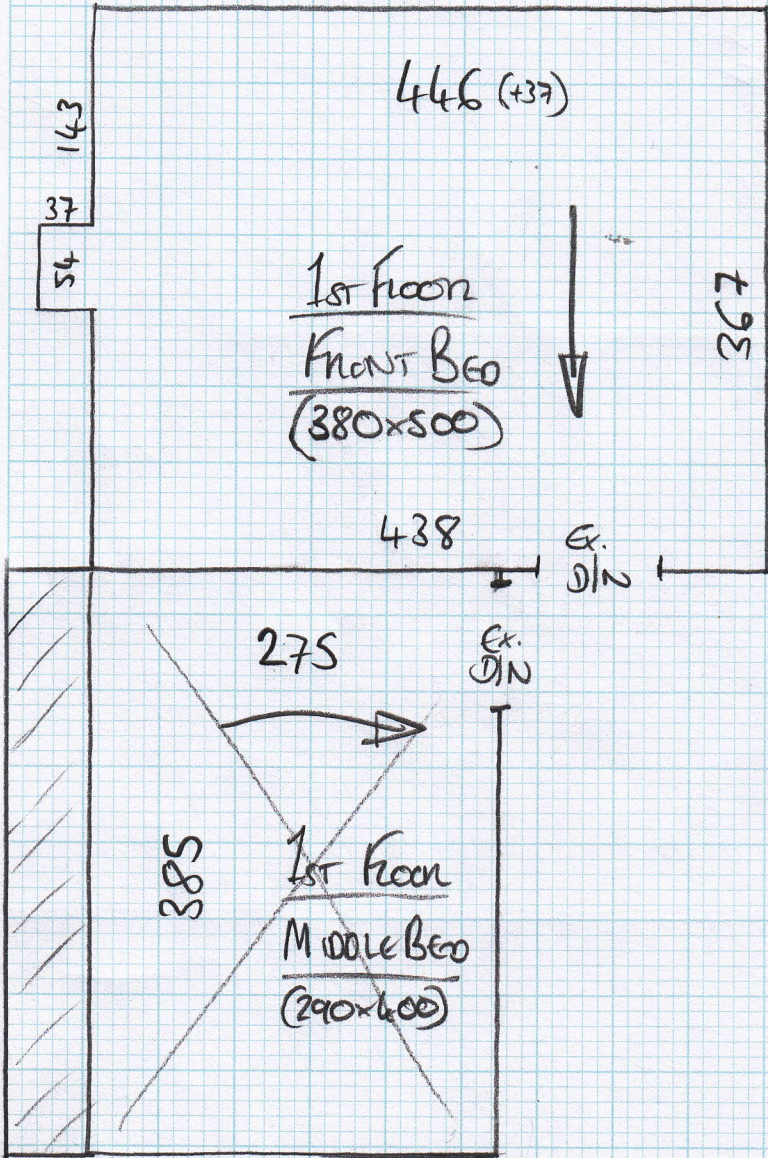 446 (+37)
143
37
54
1ST FLOOR
FRONT BED
(380x500)
367
438
Ex.
D/N
275
Ex.
D/N
385
1ST FLOOR
MIDDLE BED
(290x400)